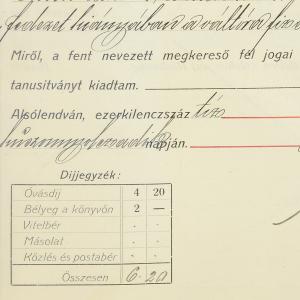 fedezet hiányában a váltóra
Miről, a fent nevezett megkereső fél jogai
tanusitványt kiadtam.
Alsólendván, ezerkilenczszáz tíz
napján.
Díjjegyzék:
Óvásdíj 4 20
Bélyeg a könyvön 2 —
Vitelbér . .
Másolat . .
Közlés és postabér . .
Összesen 6 20